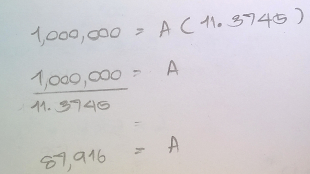 1,000,000 = A (11.3745)
1,000,000 = A
11.3745
=
87,916 = A